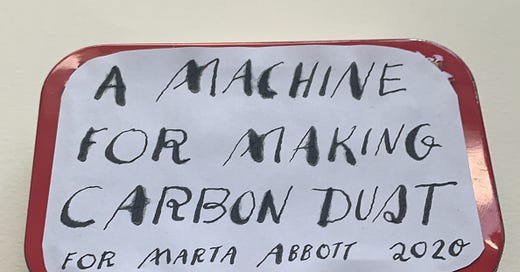 A MACHINE
FOR MAKING
CARBON DUST
FOR MARTA ABBOTT 2020